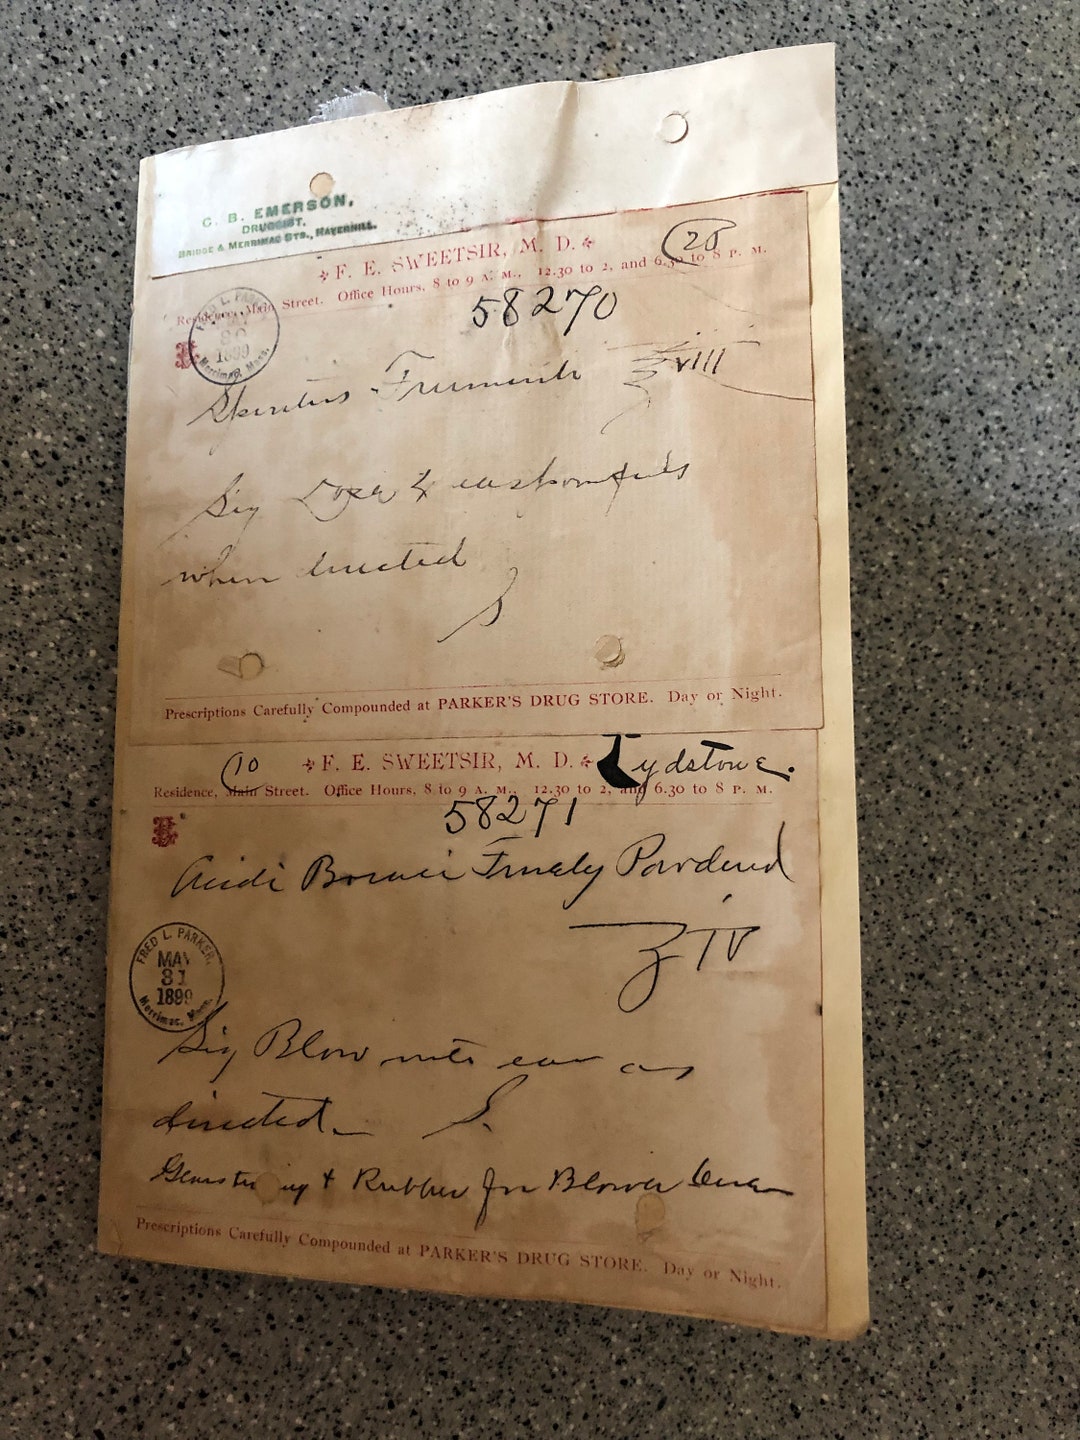 C. B. EMERSON,
DRUGGIST.
BRIDGE & MERRIMAC STS., HAVERHILL.
F. E. SWEETSIR, M. D.
20
Residence, Main Street. Office Hours, 8 to 9 A. M., 12.30 to 2, and 6.30 to 8 P. M.
58270
FRED L. PARKER
30
1899
Merrimac, Mass.
Spiritus Frumenti ℥ viii
Sig
when directed
S
Prescriptions Carefully Compounded at PARKER'S DRUG STORE. Day or Night.
10
F. E. SWEETSIR, M. D.
Lydstone.
Residence, Main Street. Office Hours, 8 to 9 A. M., 12.30 to 2, and 6.30 to 8 P. M.
58271
Acidi Boracic Finely Powdered
ʒ iv
FRED L. PARKER,
MAY
31
1899
Merrimac, Mass.
Sig Blow into ear as
directed. S.
& Rubber for Blower
Prescriptions Carefully Compounded at PARKER'S DRUG STORE. Day or Night.